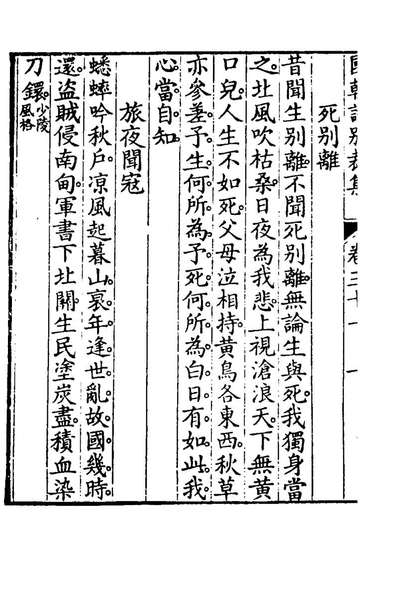 國朝詩別裁集 卷三十一 一
死別離
昔聞生別離不聞死別離無論生與死我獨身當
之北風吹枯桑日夜為我悲上視滄浪天下無黃
口兒人生不如死父母泣相持黃鳥各東西秋草
亦參差予生何所為予死何所為白日有如此我
心當自知
旅夜聞寇
蟋蟀吟秋戶涼風起暮山衰年逢世亂故國幾時
還盜賊侵南甸軍書下北關生民塗炭盡積血染
刀鐶少陵風格